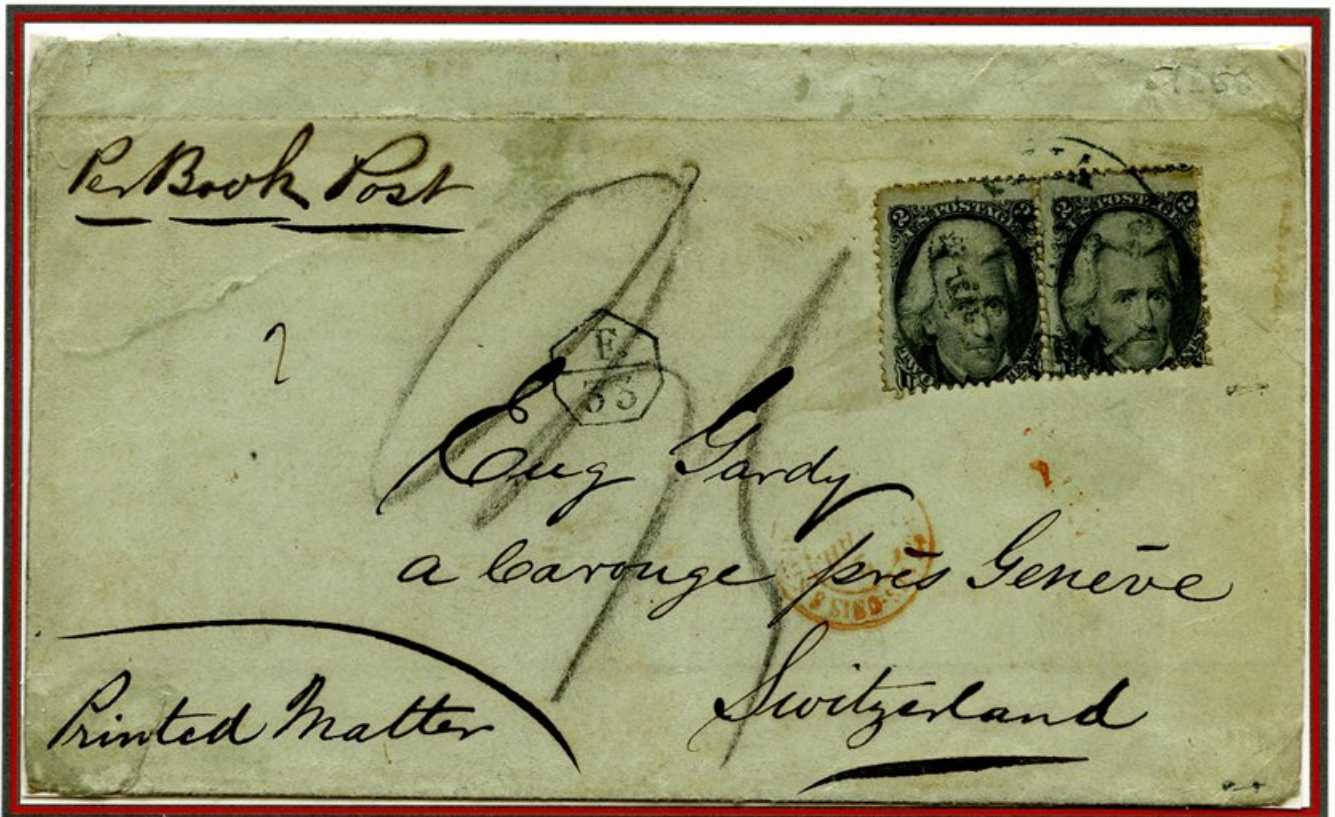 Per Book Post
2 POSTAGE 2
2 POSTAGE 2
E
33
Eug Gardy
a Carouge près Genève
Switzerland
Printed Matter